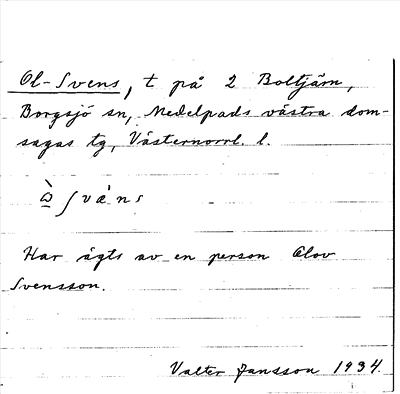 Ol-Svens, t på 2 Boltjärn,
Borgsjö sn, Medelpads västra dom-
sagas tg, Västernorrl. l.
Har ägts av en person Olov
Svensson.
Valter Jansson 1934.